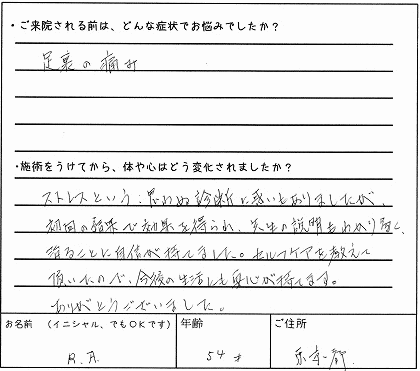 ・ご来院される前は、どんな症状でお悩みでしたか？
足裏の痛み
・施術をうけてから、体や心はどう変化されましたか？
ストレスという思わぬ診断に惑いもありましたが、
初回の施術で効果を得られ、先生の説明もわかり易く、
治ることに自信が持てました。セルフケアを教えて
頂いたので、今後の生活にも安心が持てます。
ありがとうございました。
お名前 （イニシャル、でもOKです） 年齢 ご住所
R.A. 54才 東京都